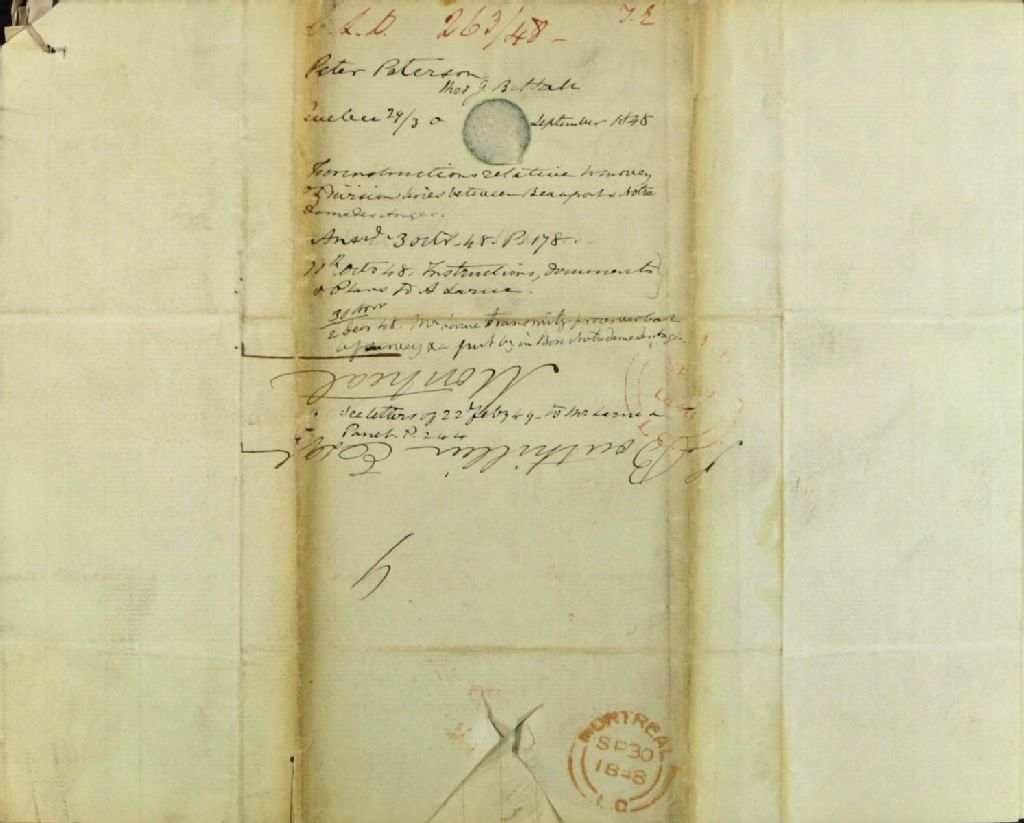 263/48 -
Peter Paterson
Thro J B Hall
Quebec 29/30
September 1848
For instructions relative to survey
of Division lines between Beauport & Notre
Dame des Anges.
Ansd 3 Octr 48 P. 178.
11th Octr 48. Instructions, documents
& Plans to A Larue.
30 Novr
2 Decr 48. Mr Larue transmits procès verbal
of survey &c put by in Box Notre dame des Anges
Montreal
See letters of 22d Feby 49 to Mr Larue &
Panet. P. 244
Bouthillier Esqr
MONTREAL
SP 30
1848
L.C